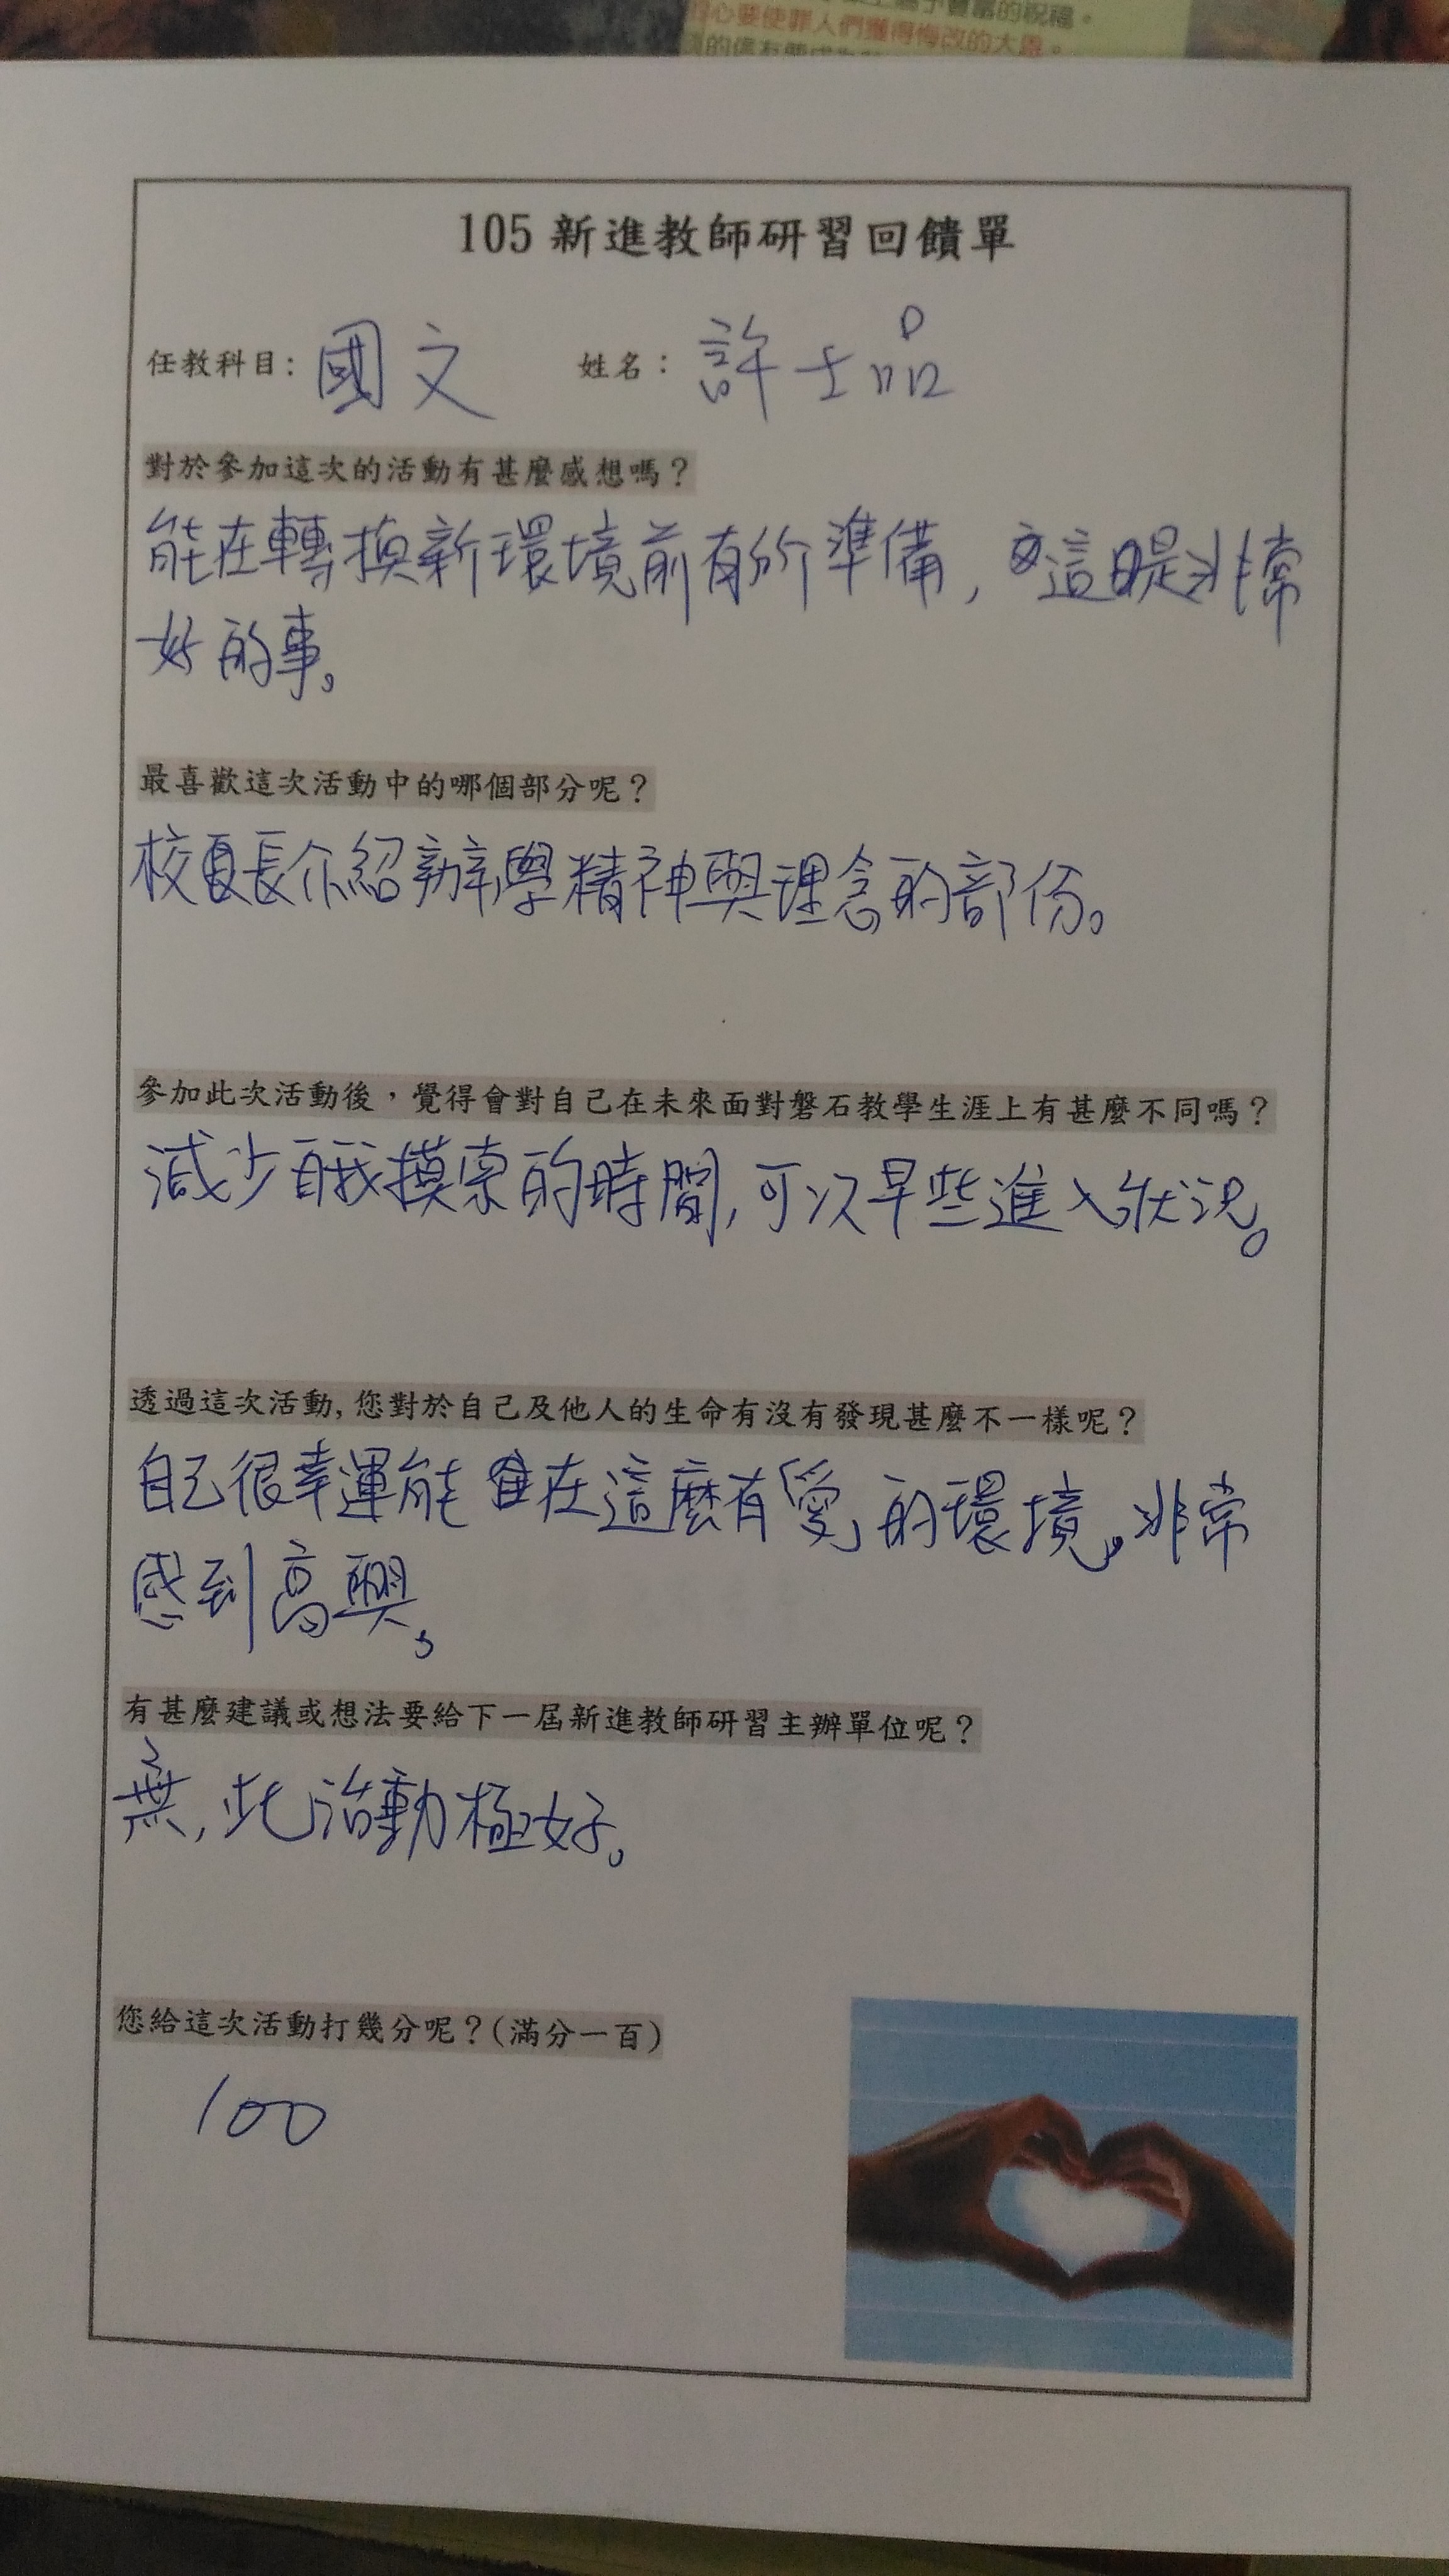 主賜予豐富的祝福。
心要使罪人們獲得悔改的大恩。
105 新進教師研習回饋單
任教科目：國文 姓名：許士品
對於參加這次的活動有甚麼感想嗎？
能在轉換新環境前有所準備，這是非常
好的事。
最喜歡這次活動中的哪個部分呢？
校長介紹辦學精神與理念的部份。
參加此次活動後，覺得會對自己在未來面對磐石教學生涯上有甚麼不同嗎？
減少自我摸索的時間，可以早些進入狀況。
透過這次活動,您對於自己及他人的生命有沒有發現甚麼不一樣呢？
自己很幸運能在這麼有「愛」的環境，非常
感到高興。
有甚麼建議或想法要給下一屆新進教師研習主辦單位呢？
無，此活動極好。
您給這次活動打幾分呢？(滿分一百)
100